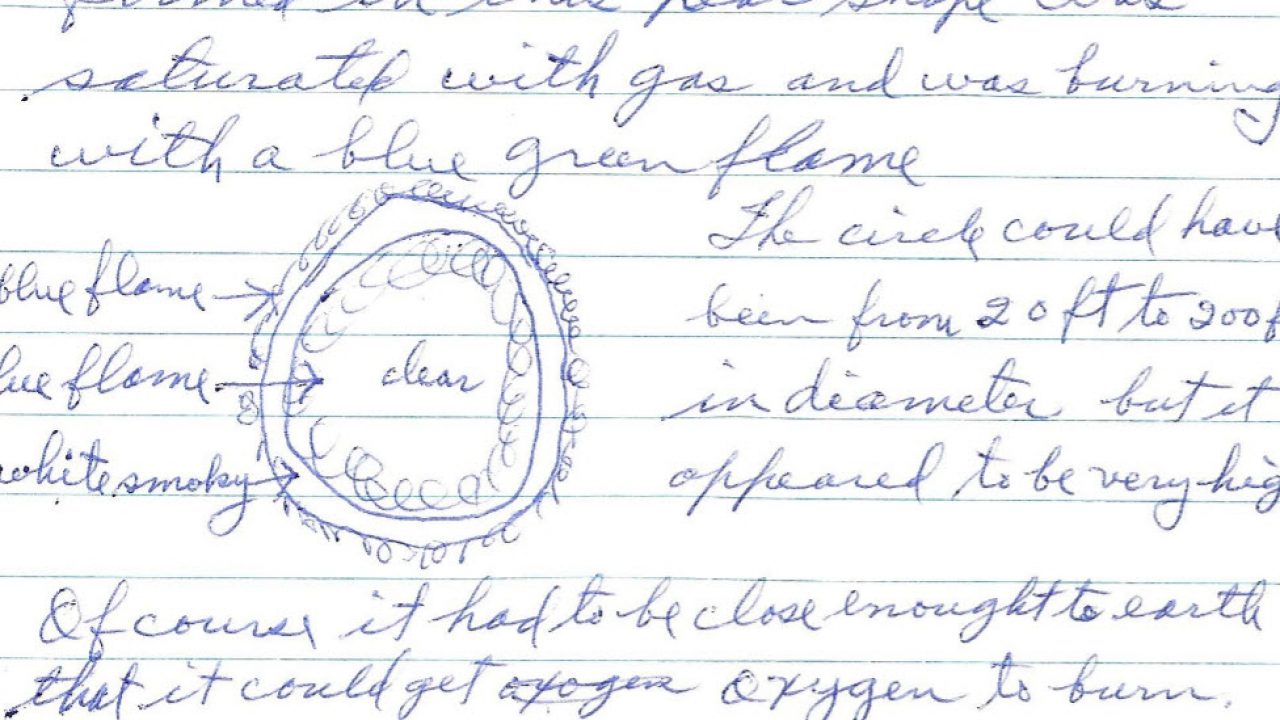 formed in this pear shape was
saturated with gas and was burning
with a blue green flame
The circle could have
blue flame
been from 20 ft to 200 f
lue flame
clear
in diameter but it
white smoky
appeared to be very hig
Of course it had to be close enought to earth
that it could get oxogen oxygen to burn.